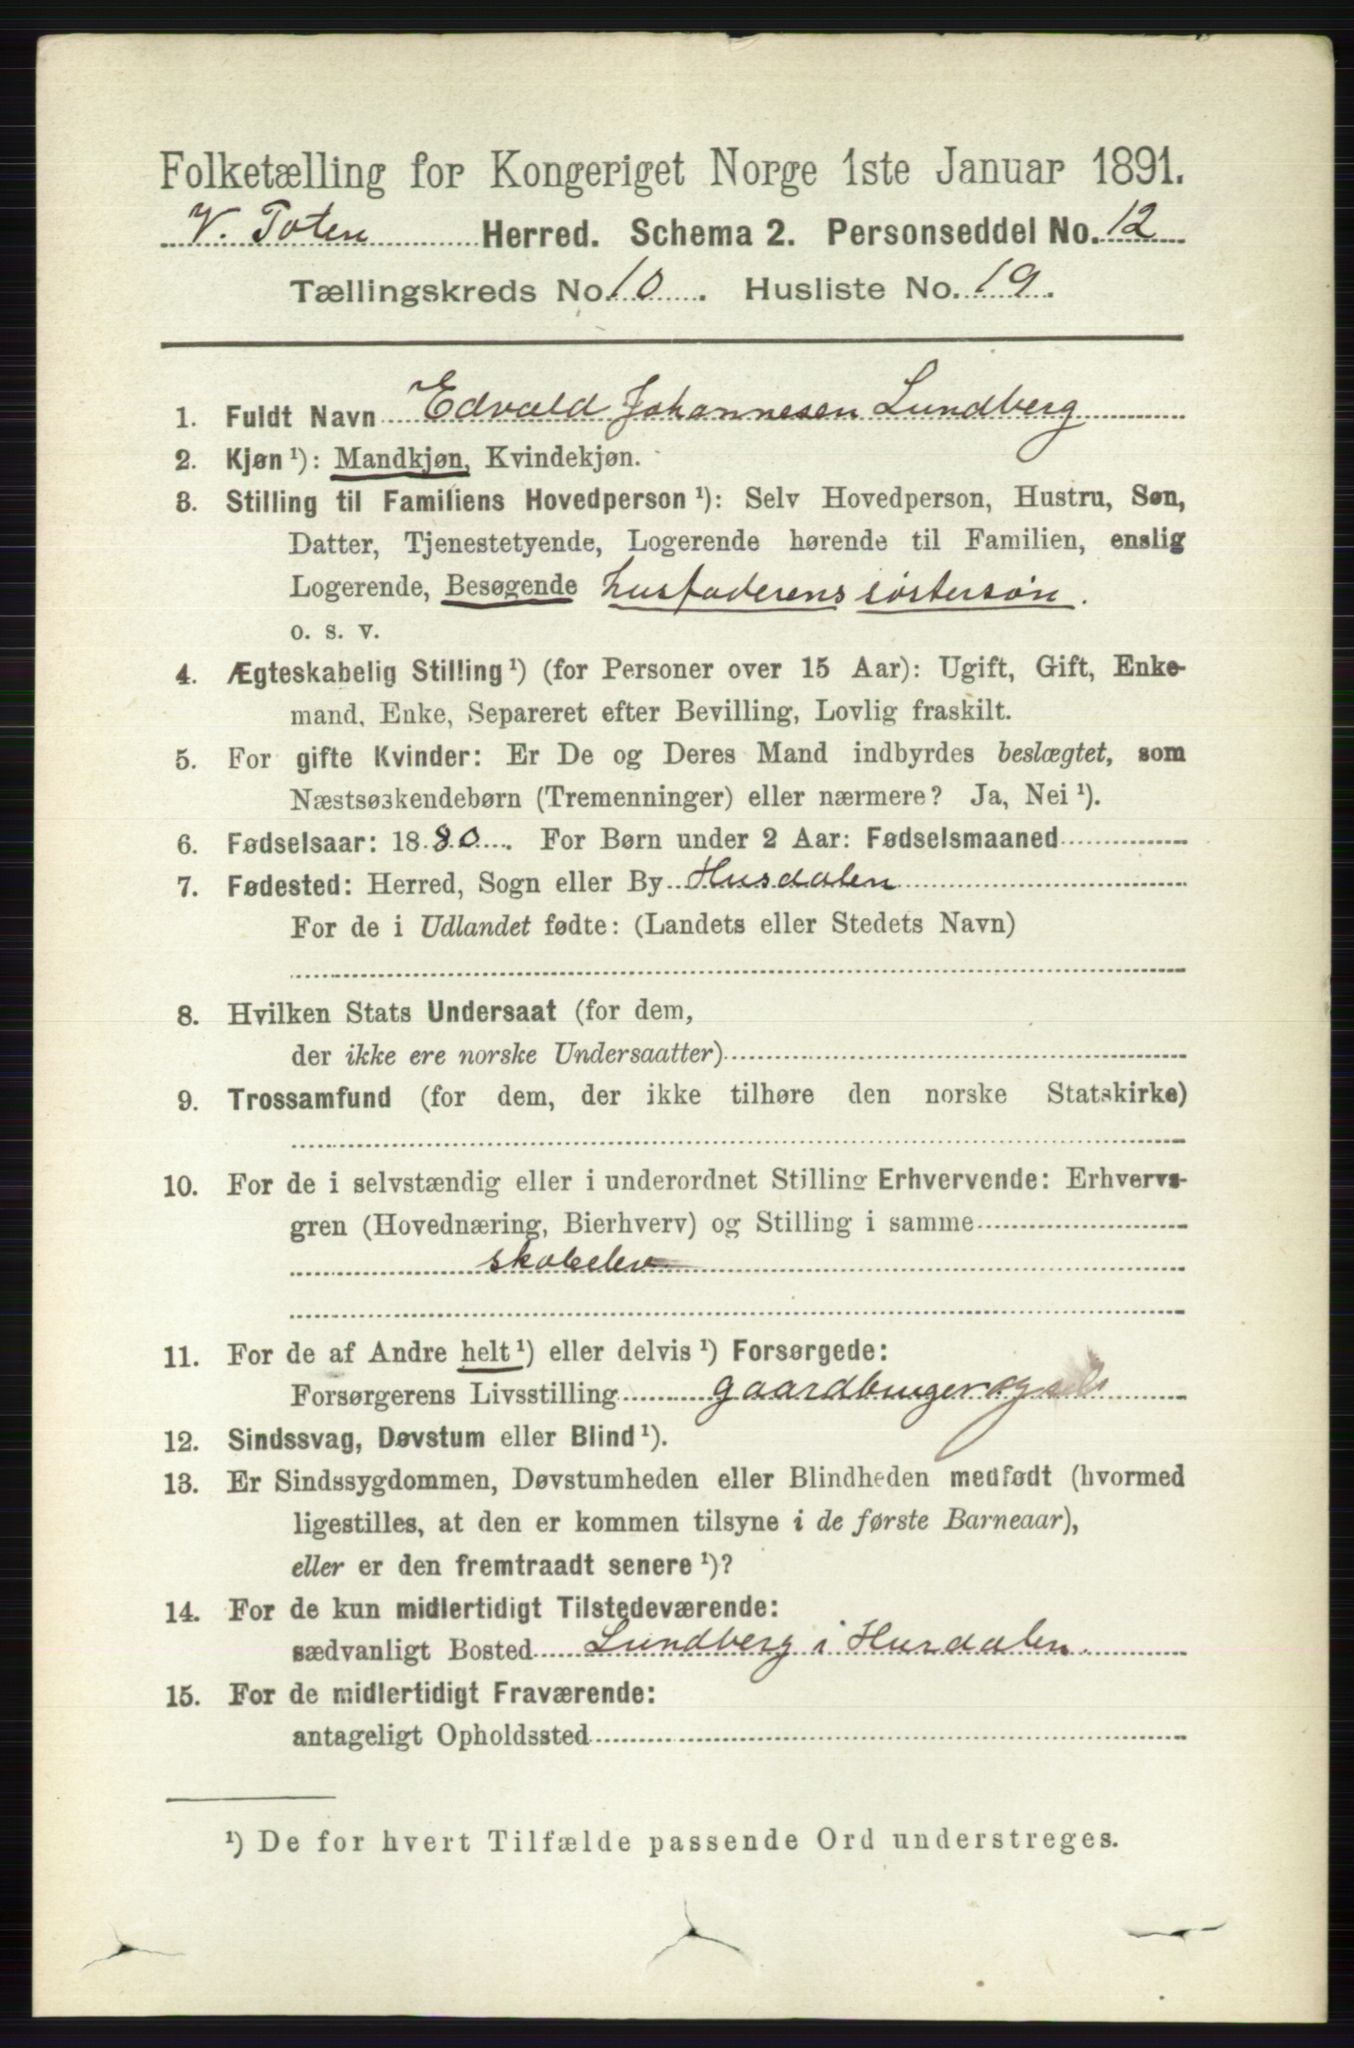 Folketælling for Kongeriget Norge 1ste Januar 1891.
V. Toten Herred. Schema 2. Personseddel No. 12
Tællingskreds No. 10. Husliste No. 19.
1. Fuldt Navn Edvald Johannesen Lundberg
2. Kjøn ¹): Mandkjøn, Kvindekjøn.
3. Stilling til Familiens Hovedperson ¹): Selv Hovedperson, Hustru, Søn,
Datter, Tjenestetyende, Logerende hørende til Familien, enslig
Logerende, Besøgende husfaderens søstersøn.
o. s. v.
4. Ægteskabelig Stilling ¹) (for Personer over 15 Aar): Ugift, Gift, Enke-
mand, Enke, Separeret efter Bevilling, Lovlig fraskilt.
5. For gifte Kvinder: Er De og Deres Mand indbyrdes beslægtet, som
Næstsøskendebørn (Tremenninger) eller nærmere? Ja, Nei ¹).
6. Fødselsaar: 1880. For Børn under 2 Aar: Fødselsmaaned
7. Fødested: Herred, Sogn eller By Husdalen
For de i Udlandet fødte: (Landets eller Stedets Navn)
8. Hvilken Stats Undersaat (for dem,
der ikke ere norske Undersaatter)
9. Trossamfund (for dem, der ikke tilhøre den norske Statskirke)
10. For de i selvstændig eller i underordnet Stilling Erhvervende: Erhvervs-
gren (Hovednæring, Bierhverv) og Stilling i samme
skoleelev
11. For de af Andre helt ¹) eller delvis ¹) Forsørgede:
Forsørgerens Livsstilling gaardbruger og
12. Sindssvag, Døvstum eller Blind ¹).
13. Er Sindssygdommen, Døvstumheden eller Blindheden medfødt (hvormed
ligestilles, at den er kommen tilsyne i de første Barneaar),
eller er den fremtraadt senere ¹)?
14. For de kun midlertidigt Tilstedeværende:
sædvanligt Bosted Lundberg i Hurdalen.
15. For de midlertidigt Fraværende:
antageligt Opholdssted
¹) De for hvert Tilfælde passende Ord understreges.